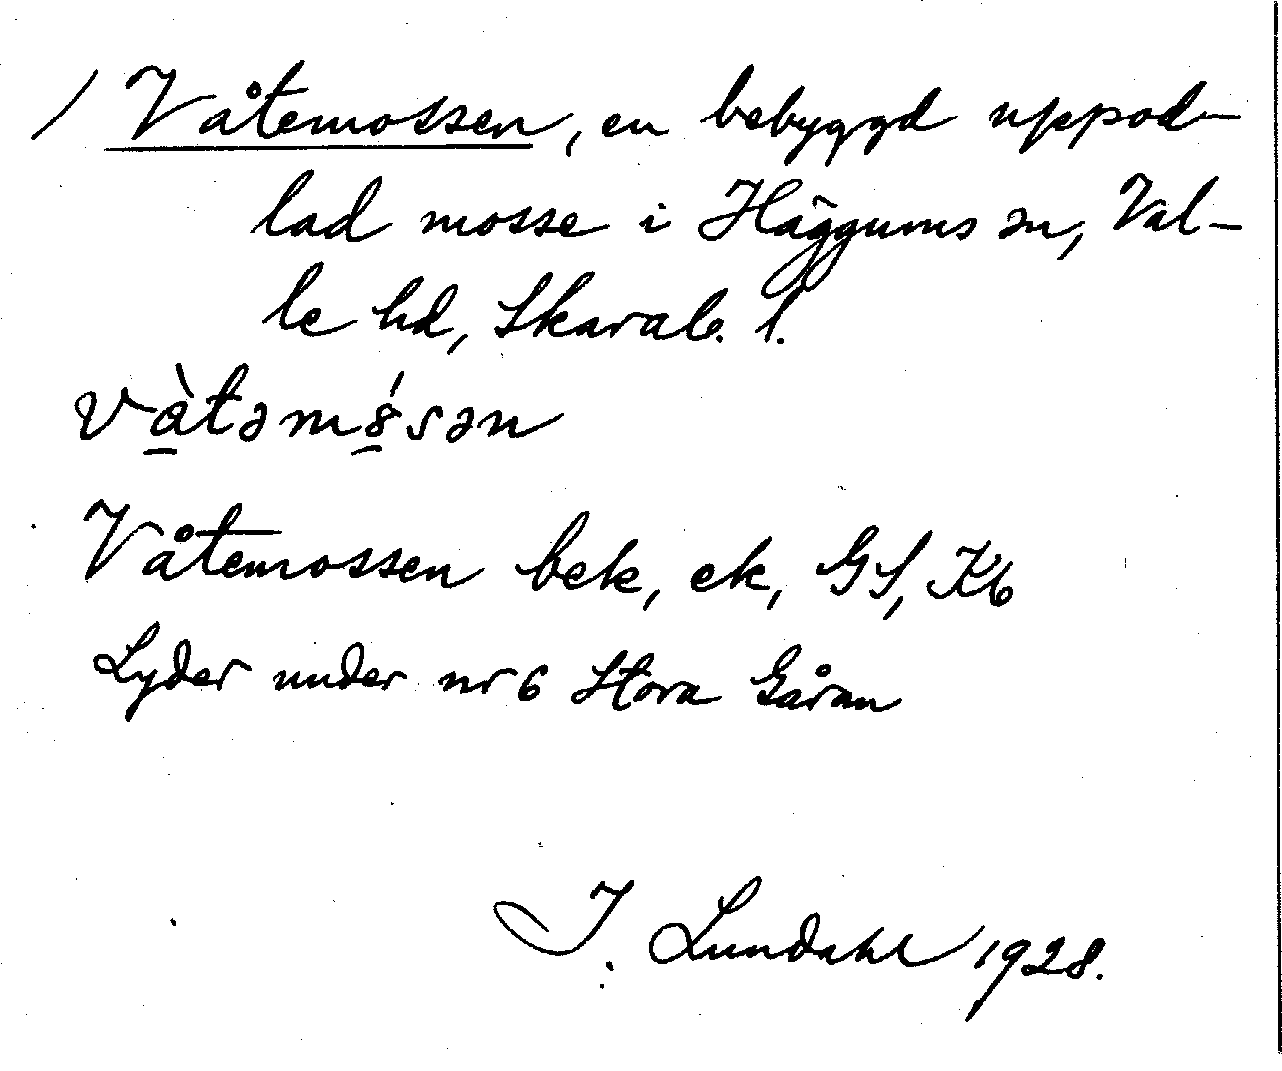 / Våtemossen, en bebyggd uppod-
lad mosse i Häggums sn, Val-
le hd, Skarab. l.
vàtəmósən
Våtemossen bek, ek, GS, Kb
Lyder under nr 6 Stora Gåran
I. Lundahl 1928.